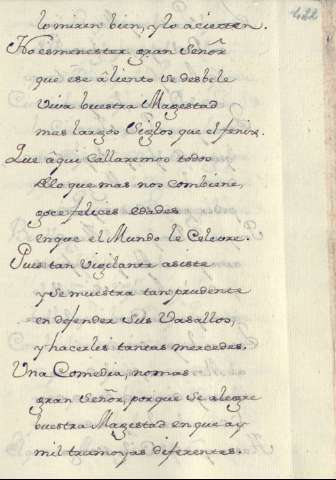 422
lo miren bien, y lo acierten.
No es menester gran Señor
que ese aliento se desbele
viva buestra Magestad
mas largos Siglos que el fenix.
Que aqui callaremos todos
lo que mas nos combiene,
goce felices edades
en que el Mundo le Celebre.
Pues tan vigilante asiste
y se muestra tan prudente
en defender Sus Vasallos,
y hacerles tantas mercedes.
Una Comedia, no mas
gran Señor, porque se alegre
buestra Magestad en que ay
mil tramoyas diferentes.